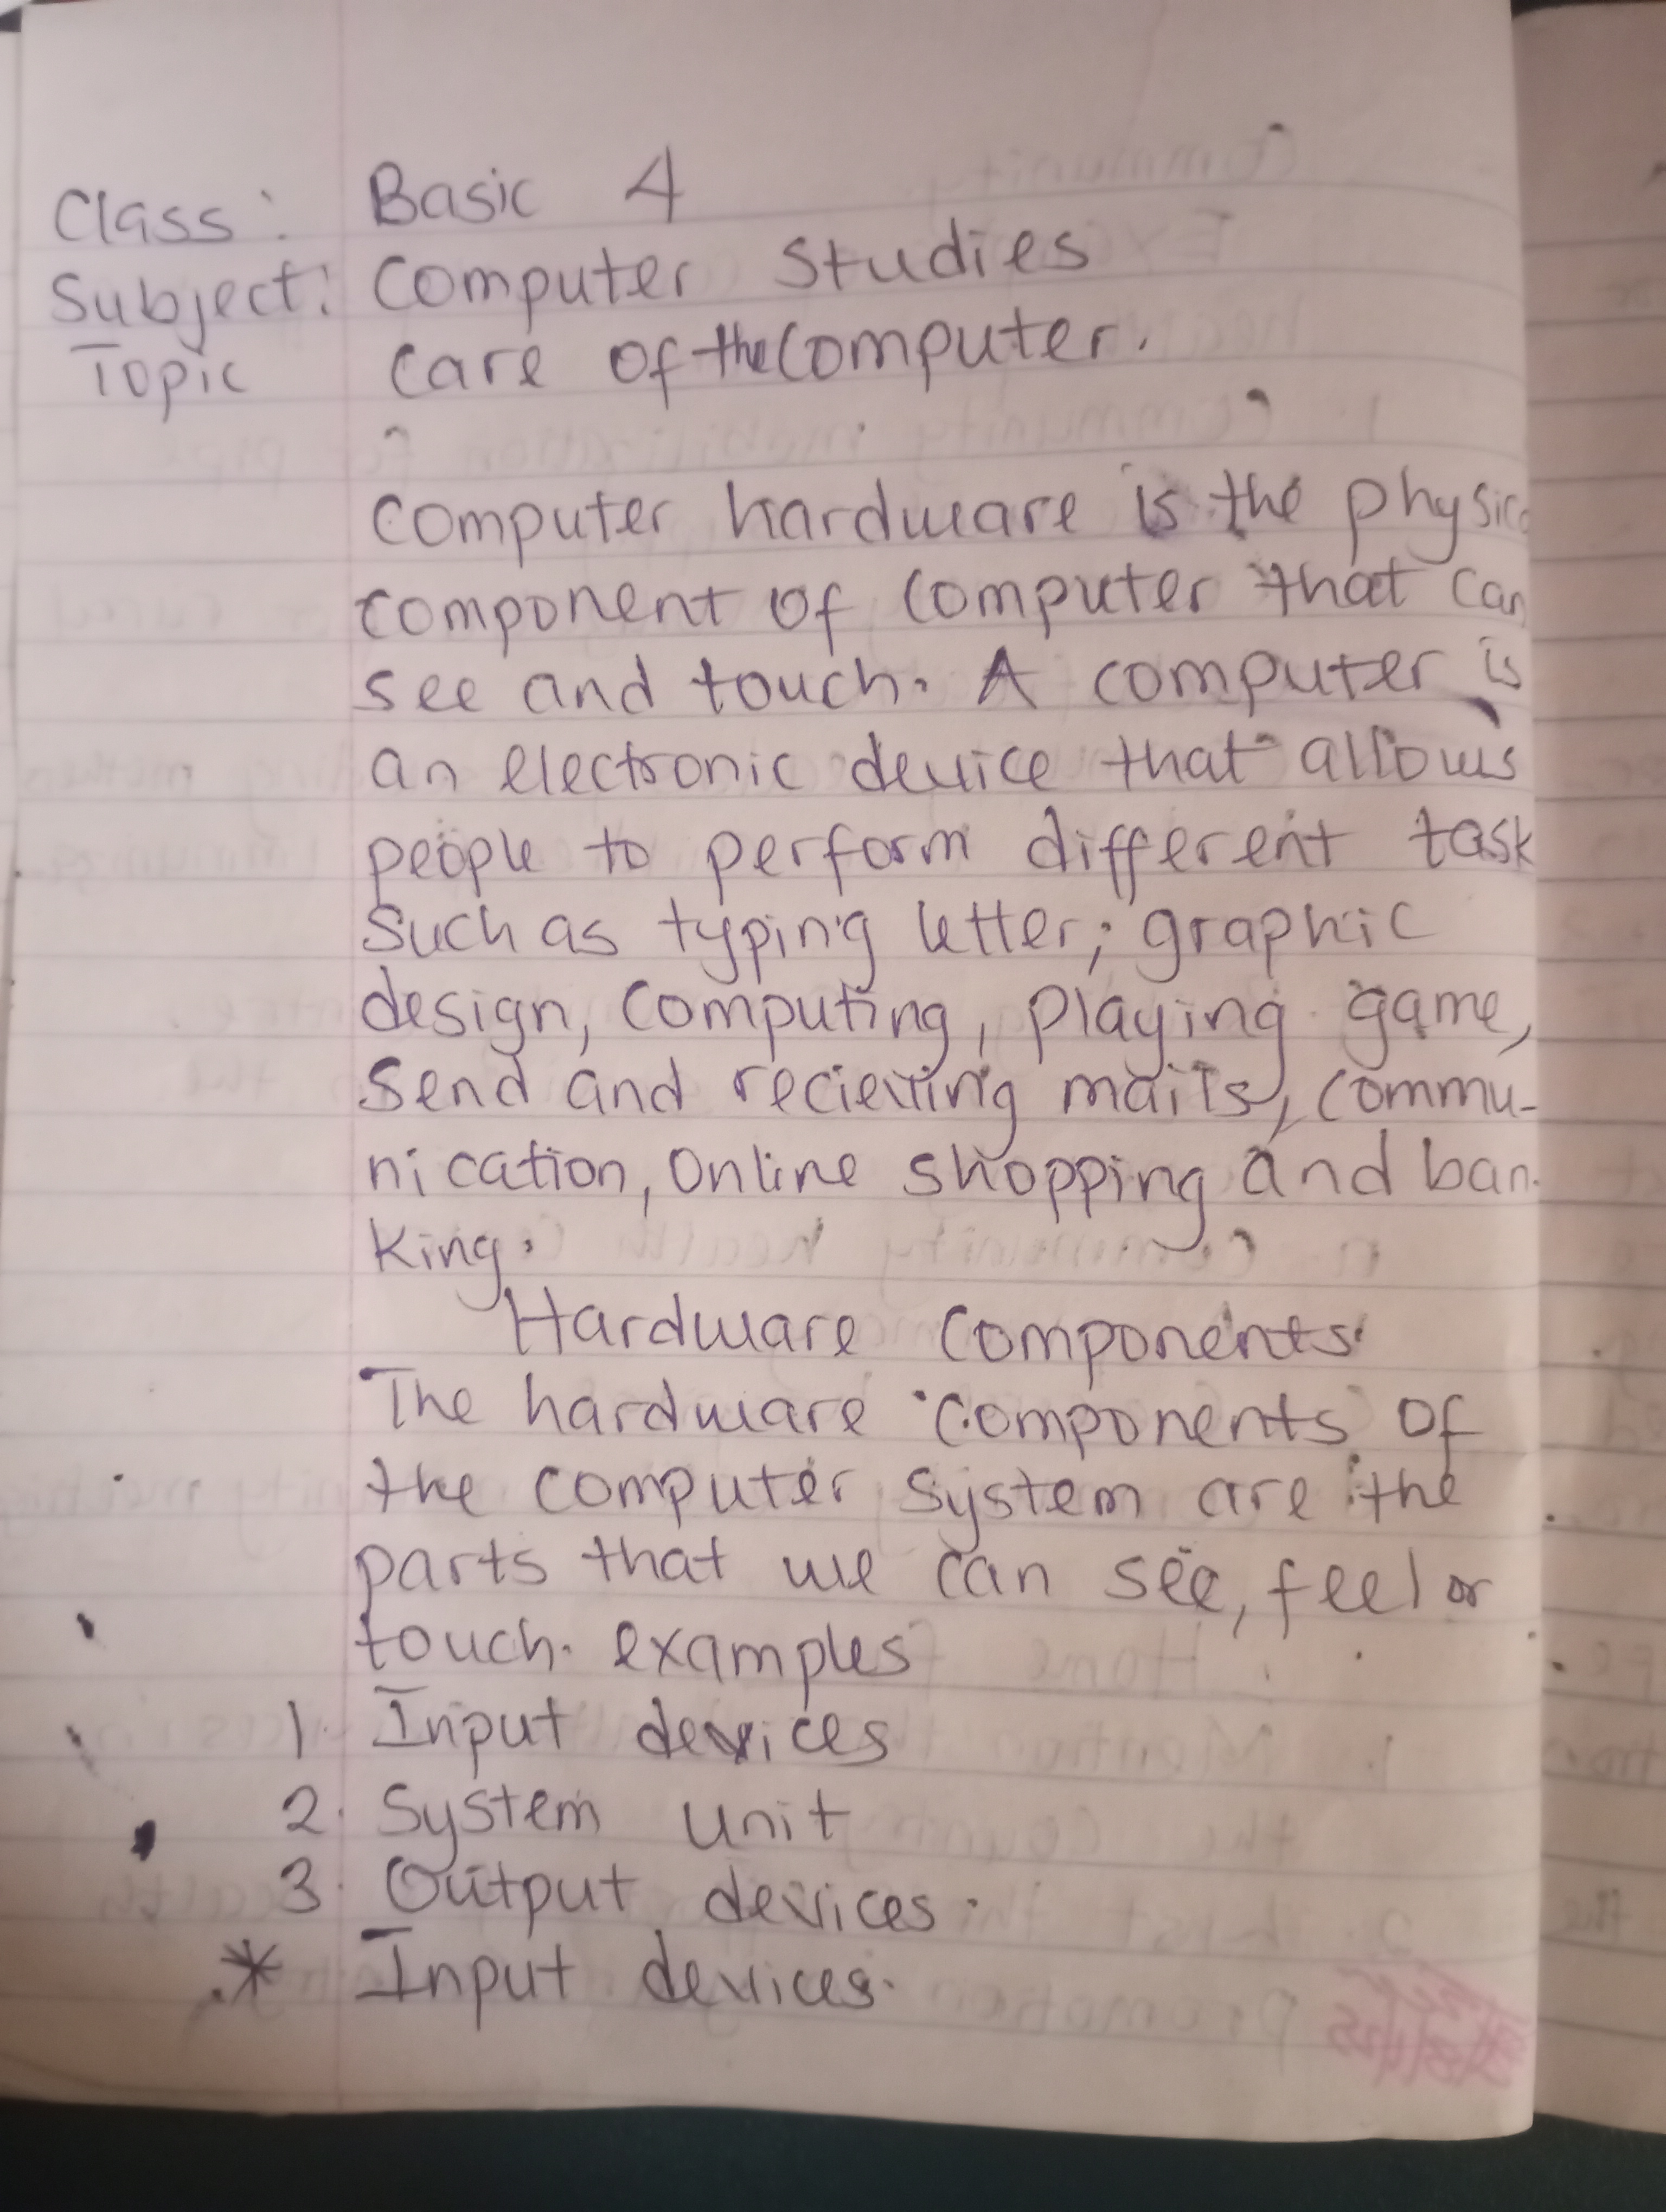 Class: Basic 4
Subject: Computer Studies
Topic Care of the Computer.
Computer hardware is the physic
component of computer that can
see and touch. A computer is
an electronic device that allows
people to perform different task
Such as typing letter; graphic
design, computing, playing game,
Send and recieving mails, commu-
nication, Online shopping and ban-
king.
Hardware Components
The hardware components of
the computer system are the
parts that we can see, feel or
touch. examples
1. Input devices
2. System unit
3. Output devices.
* Input devices.